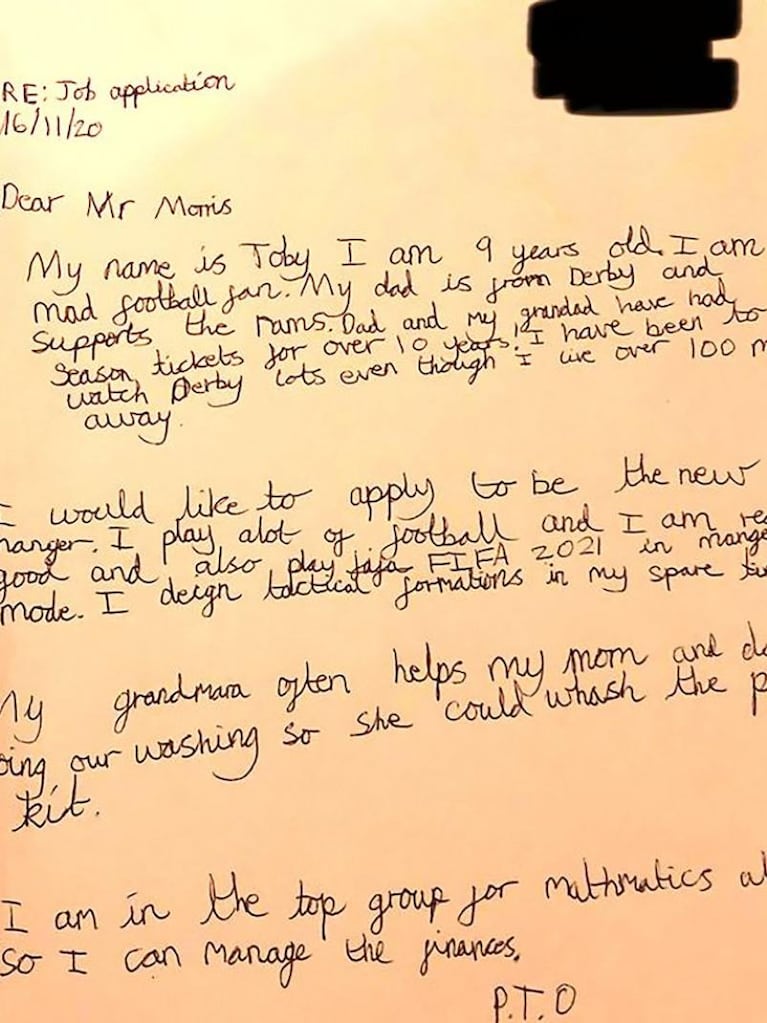 RE: Job application
16/11/20
Dear Mr Morris
My name is Toby I am 9 years old. I am
mad football fan. My dad is from Derby and
supports the rams. Dad and my grandad have had
season tickets for over 10 years! I have been to
watch Derby lots even though I live over 100 m
away.
I would like to apply to be the new
manger. I play alot of football and I am re
good and also play fifa FIFA 2021 in mange
mode. I deign tactical formations in my spare
My grandmara often helps my mom and da
oing our washing so she could whash the p
kit.
I am in the top group for mathmatics al
so I can manage the finances.
P.T.O